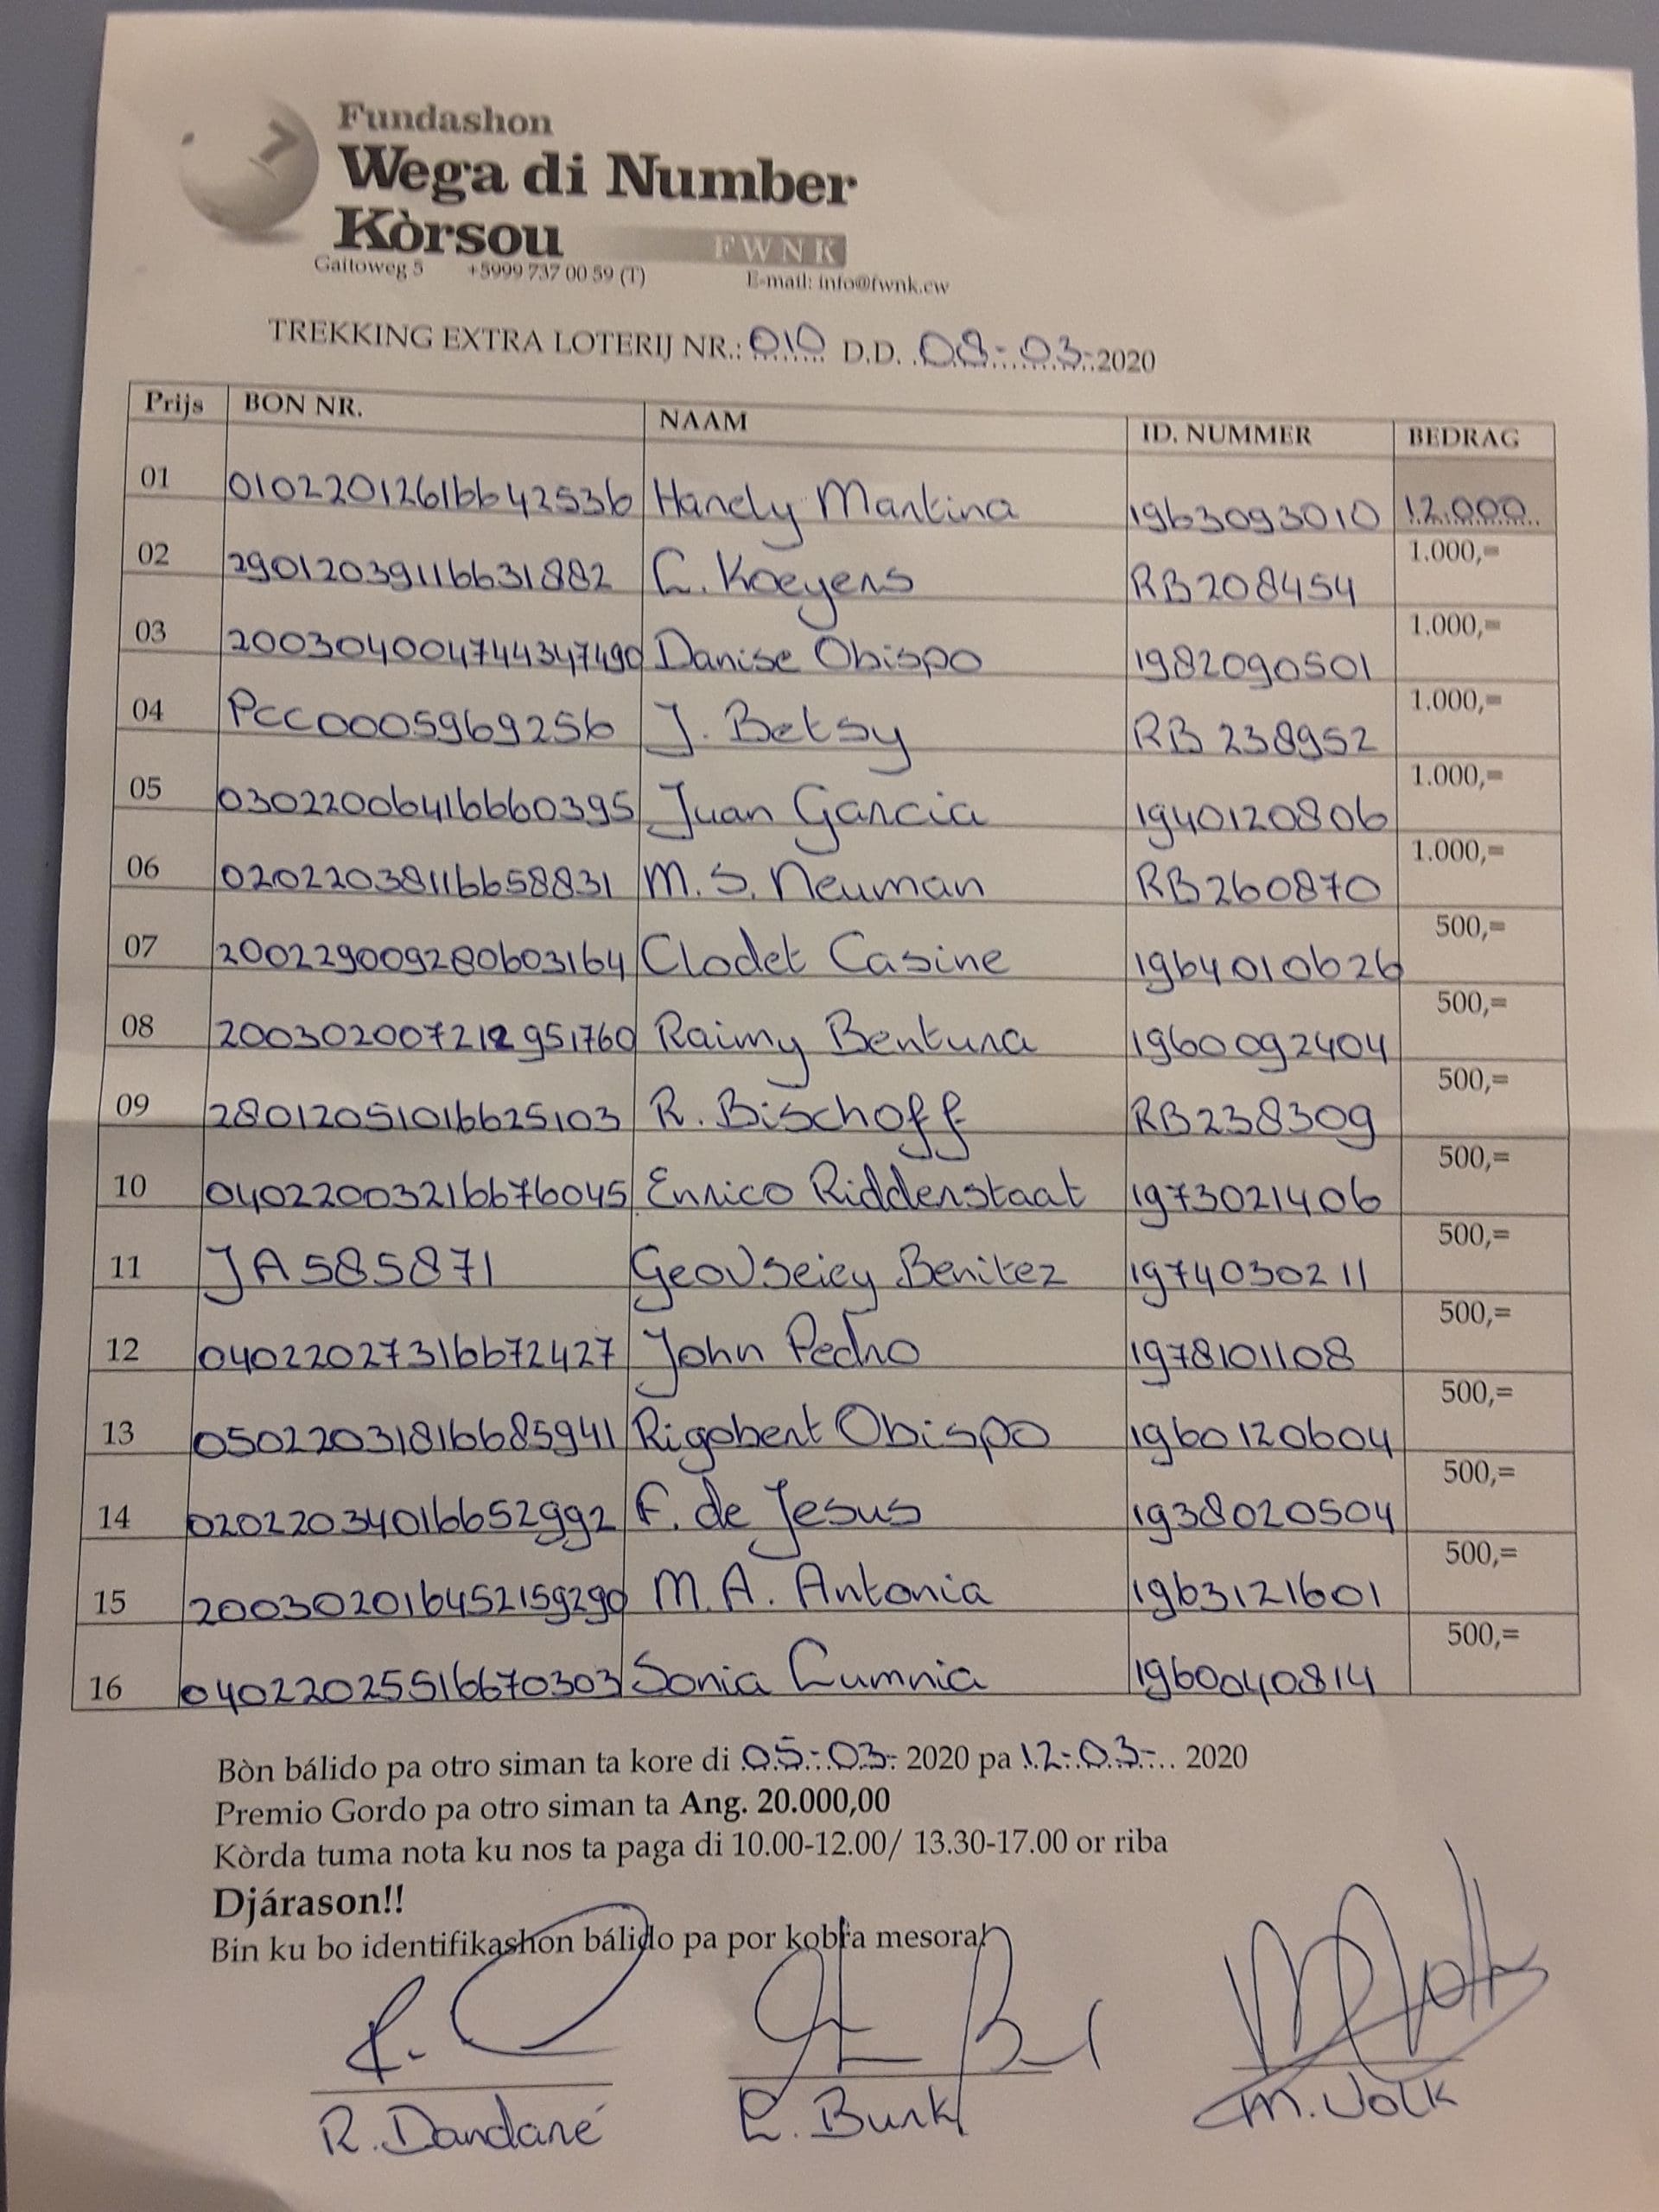 Fundashon
Wega di Number
Kòrsou
FWNK
Gaitoweg 5 +5999 737 00 59 (T) E-mail: info@fwnk.cw
TREKKING EXTRA LOTERIJ NR.: 010 D.D. 08-03-2020
Prijs BON NR. NAAM ID. NUMMER BEDRAG
01 01022012616642536 Handy Martina 1963093010 12.000
02 29012039116631882 C. Koeyers RB208454 1.000,=
03 200304004744347490 Danise Obispo 1982090501 1.000,=
04 PCC0005969256 J. Betsy RB 238952 1.000,=
05 03022006416660395 Juan Garcia 1940120806 1.000,=
06 02022038116658831 M.S. Neuman RB260870 1.000,=
07 200229009280603164 Clodet Casine 1964010626 500,=
08 200302007212951760 Raimy Bentura 1960092404 500,=
09 28012051016625103 R. Bischoff RB238309 500,=
10 04022003216676045 Enrico Riddenstaat 1973021406 500,=
11 JA585871 Benitez 1974030211 500,=
12 04022027316672427 John Pedro 1978101108 500,=
13 05022031816685941 Rigobert Obispo 1960120604 500,=
14 02022034016652992 F. de Jesus 1938020504 500,=
15 2003020164521592​90 M.A. Antonia 1963121601 500,=
16 04022025516670303 Sonia Cumnia 1960040814 500,=
Bòn bálido pa otro siman ta kore di 05-03-2020 pa 12-03-2020
Premio Gordo pa otro siman ta Ang. 20.000,00
Kòrda tuma nota ku nos ta paga di 10.00-12.00/ 13.30-17.00 or riba
Djárason!!
Bin ku bo identifikashon bálido pa por kobra mesora!
R. Dandaré R. Burk M. Volk